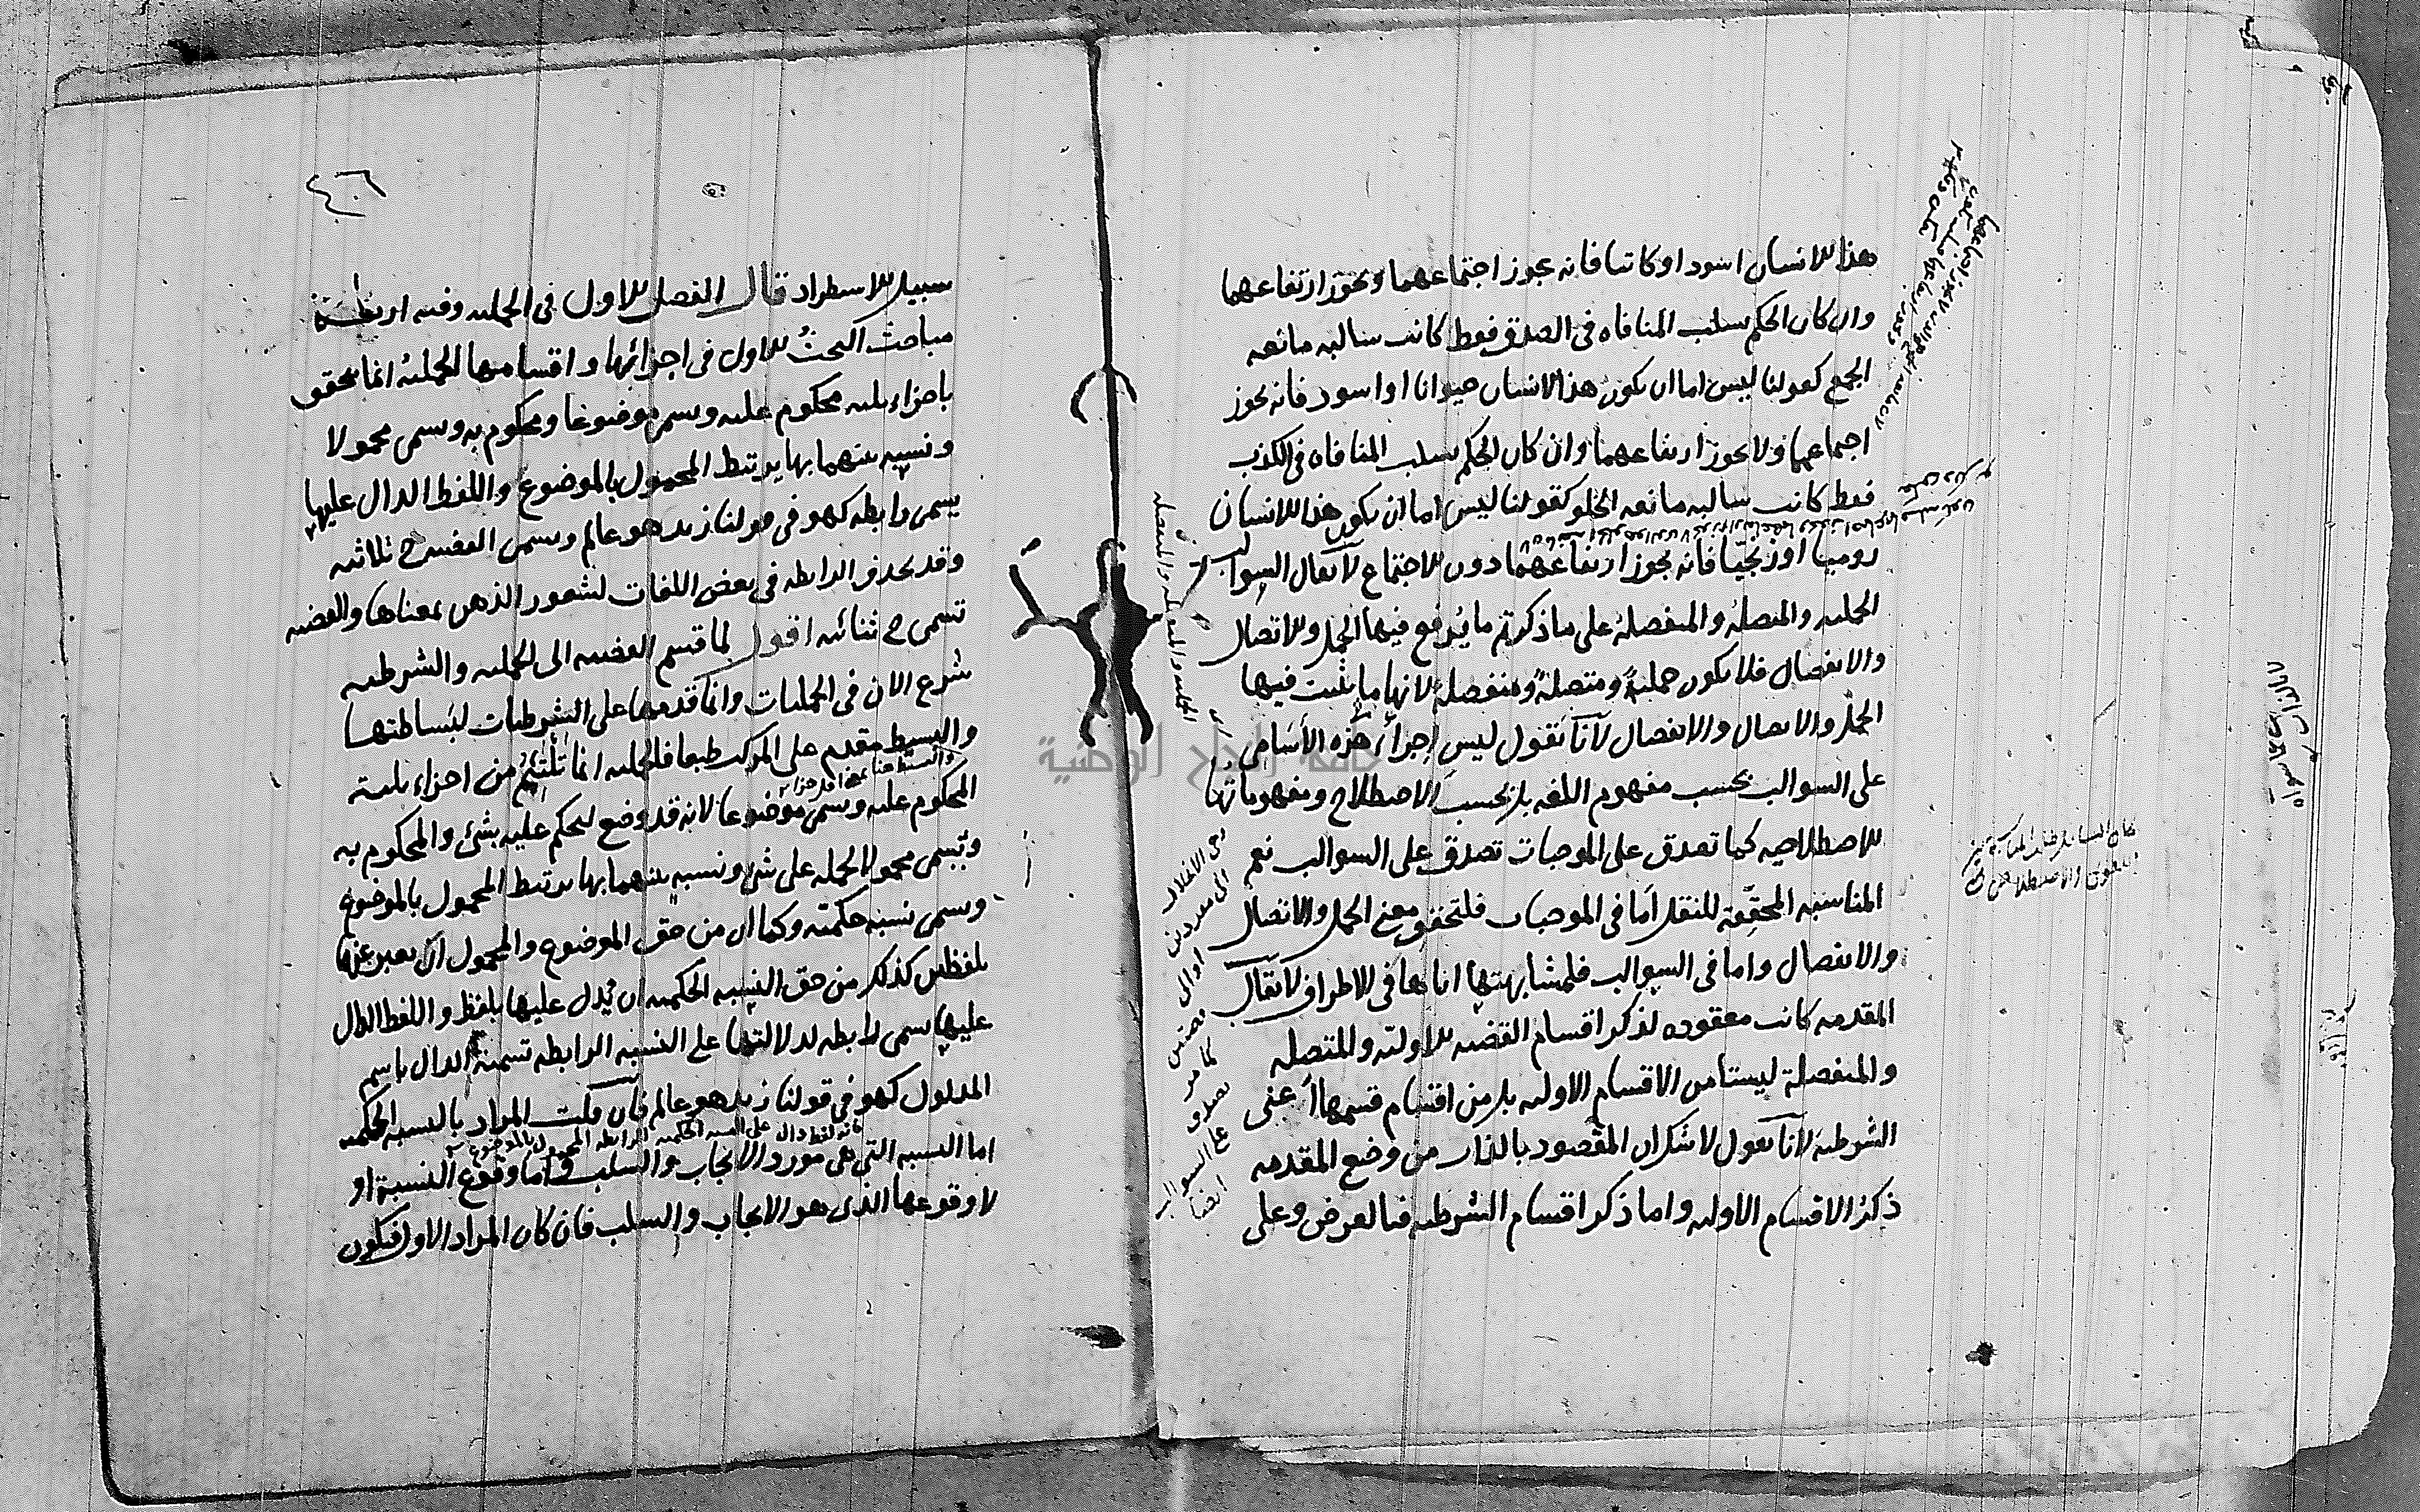 هذا الانسان اسود او كاتبا فانه يجوز اجتماعهما ويجوز ارتفاعهما
وان كان الحكم بسلب المنافاه فى الصدق فقط كانت سالبه مانعه
الجمع كقولنا ليس اما ان يكون هذا الانسان حيوانا او اسود فانه يجوز
اجتماعهما ولا يجوز ارتفاعهما وان كان الحكم بسلب المنافاه فى الكذب
فقط كانت سالبه مانعه الخلو كقولنا ليس اما ان يكون هذا الانسان
روميا او زنجيا فانه يجوز ارتفاعهما دون الاجتماع لا يقال السوالب
الحمليه والمتصلة والمنفصلة على ما ذكرتم ما يرفع فيها الحمل والاتصال
والانفصال فلا يكون حملية ومتصلة ومنفصلة لانها ما يثبت فيها
الحمل والاتصال والانفصال لانا نقول ليس اجراء هذه الاسامى
على السوالب بحسب مفهوم اللغه بل بحسب الاصطلاح ومفهوماتها
الاصطلاحيه كما تصدق على الموجبات تصدق على السوالب نعم
المناسبه المحققة للنقل اما فى الموجبات فلتحقق معنى الحمل والاتصال
والانفصال واما فى السوالب فلمشابهتها اياها فى الاطراف لا يقال
المقدمه كانت معقوده لذكر اقسام القضيه الاوليه والمتصله
والمنفصلة ليستا من الاقسام الاوليه بل من اقسام قسمها اعنى
الشرطيه لانا نقول لا شك ان المقصود بالذات من وضع المقدمه
ذكر الاقسام الاوليه واما ذكر اقسام الشرطيه فبالعرض وعلى
الحمليه والمتصله والمنفصله
اوالى
كما مر
على السوالب
ايضا
٤٠٦
سبيل الاستطراد قال الفصل الاول فى الحمليه وفيه اربعة
مباحث البحث الاول فى اجزائها واقسامها الحملية انما يتحقق
باجزاء ثلثه محكوم عليه ويسمى موضوعا ومحكوم به ويسمى محمولا
ونسبه بينهما بها يرتبط المحمول بالموضوع واللفظ الدال عليها
يسمى رابطه كهو فى قولنا زيد هو عالم ويسمى القضيه ح ثلاثيه
وقد يحذف الرابطه فى بعض اللغات لشعور الذهن بمعناها والقضيه
تسمى ح ثنائيه اقول لما قسم القضيه الى الحمليه والشرطيه
شرع الان فى الحمليات وانما قدمها على الشرطيات لبساطتها
والبسيط مقدم على المركب طبعا فالحمليه انما تلتئم من اجزاء ثلثة
المحكوم عليه ويسمى موضوعا لانه قد وضع ليحكم عليه بشئ والمحكوم به
ويسمى محمولا لحمله على شئ ونسبه بينهما بها يرتبط المحمول بالموضوع
ويسمى نسبه حكميه وكما ان من حق الموضوع والمحمول ان يعبر عنهما
بلفظين كذلك من حق النسبه الحكميه ان يدل عليها بلفظ واللفظ الدال
عليها يسمى رابطه لدلالتها على النسبه الرابطه تسمية الدال باسم
المدلول كهو فى قولنا زيد هو عالم فان قلت المراد بالنسبه الحكميه
اما النسبه التى هى مورد الايجاب والسلب واما وقوع النسبة او
لا وقوعها الذى هو الايجاب والسلب فان كان المراد الاول فيكون
جامعة النجاح الوطنية